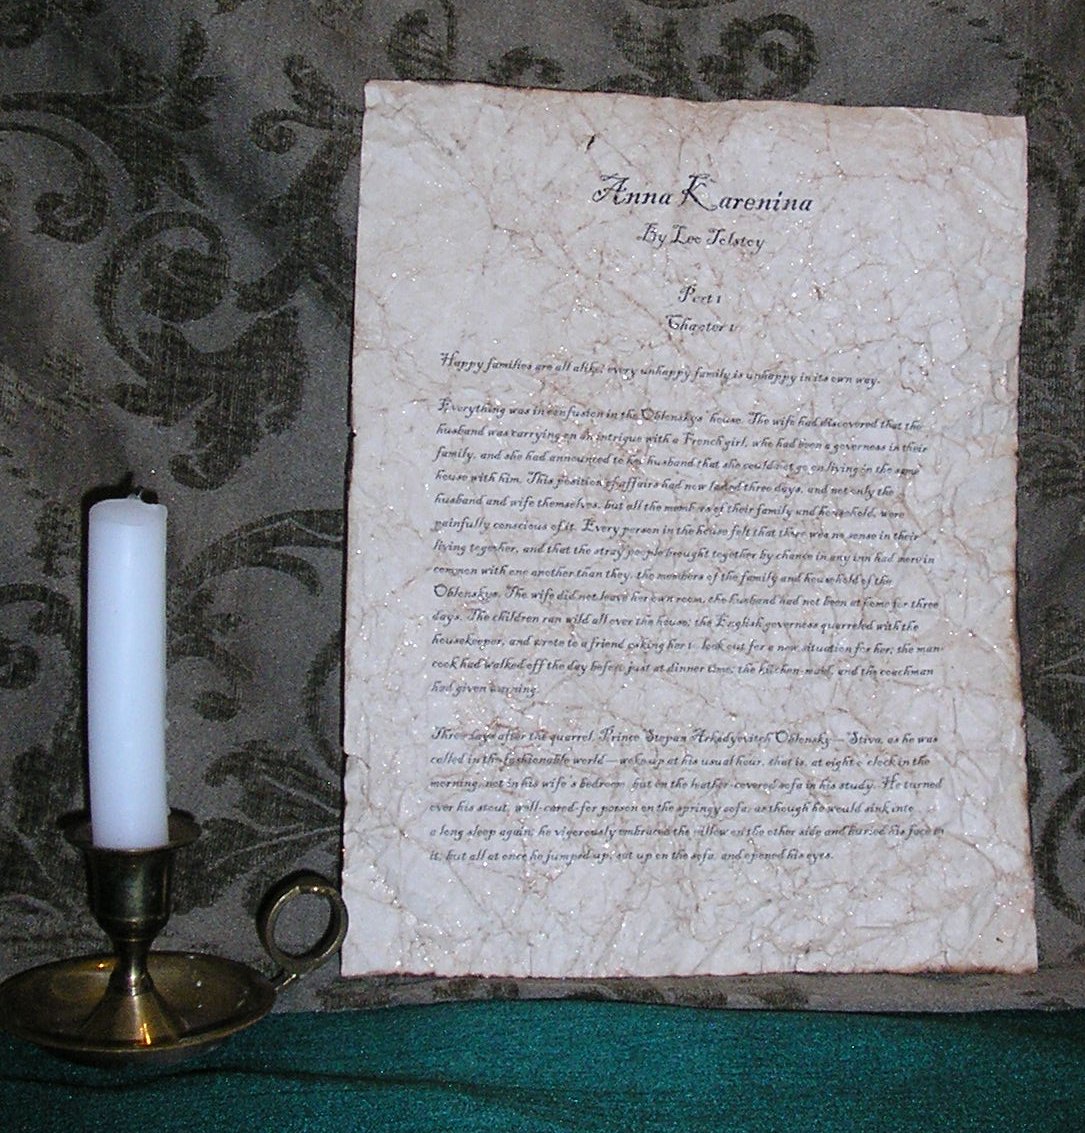 Anna Karenina
By Leo Tolstoy
Part 1
Chapter 1
Happy families are all alike; every unhappy family is unhappy in its own way.
Everything was in confusion in the Oblonskys' house. The wife had discovered that the
husband was carrying on an intrigue with a French girl, who had been a governess in their
family, and she had announced to her husband that she could not go on living in the same
house with him. This position of affairs had now lasted three days, and not only the
husband and wife themselves, but all the members of their family and household, were
painfully conscious of it. Every person in the house felt that there was no sense in their
living together, and that the stray people brought together by chance in any inn had more in
common with one another than they, the members of the family and household of the
Oblonskys. The wife did not leave her own room, the husband had not been at home for three
days. The children ran wild all over the house; the English governess quarreled with the
housekeeper, and wrote to a friend asking her to look out for a new situation for her; the man-
cook had walked off the day before just at dinner time; the kitchen-maid, and the coachman
had given warning.
Three days after the quarrel, Prince Stepan Arkadyevitch Oblonsky—Stiva, as he was
called in the fashionable world—woke up at his usual hour, that is, at eight o'clock in the
morning, not in his wife's bedroom, but on the leather-covered sofa in his study. He turned
over his stout, well-cared-for person on the springy sofa, as though he would sink into
a long sleep again; he vigorously embraced the pillow on the other side and buried his face in
it; but all at once he jumped up, sat up on the sofa, and opened his eyes.